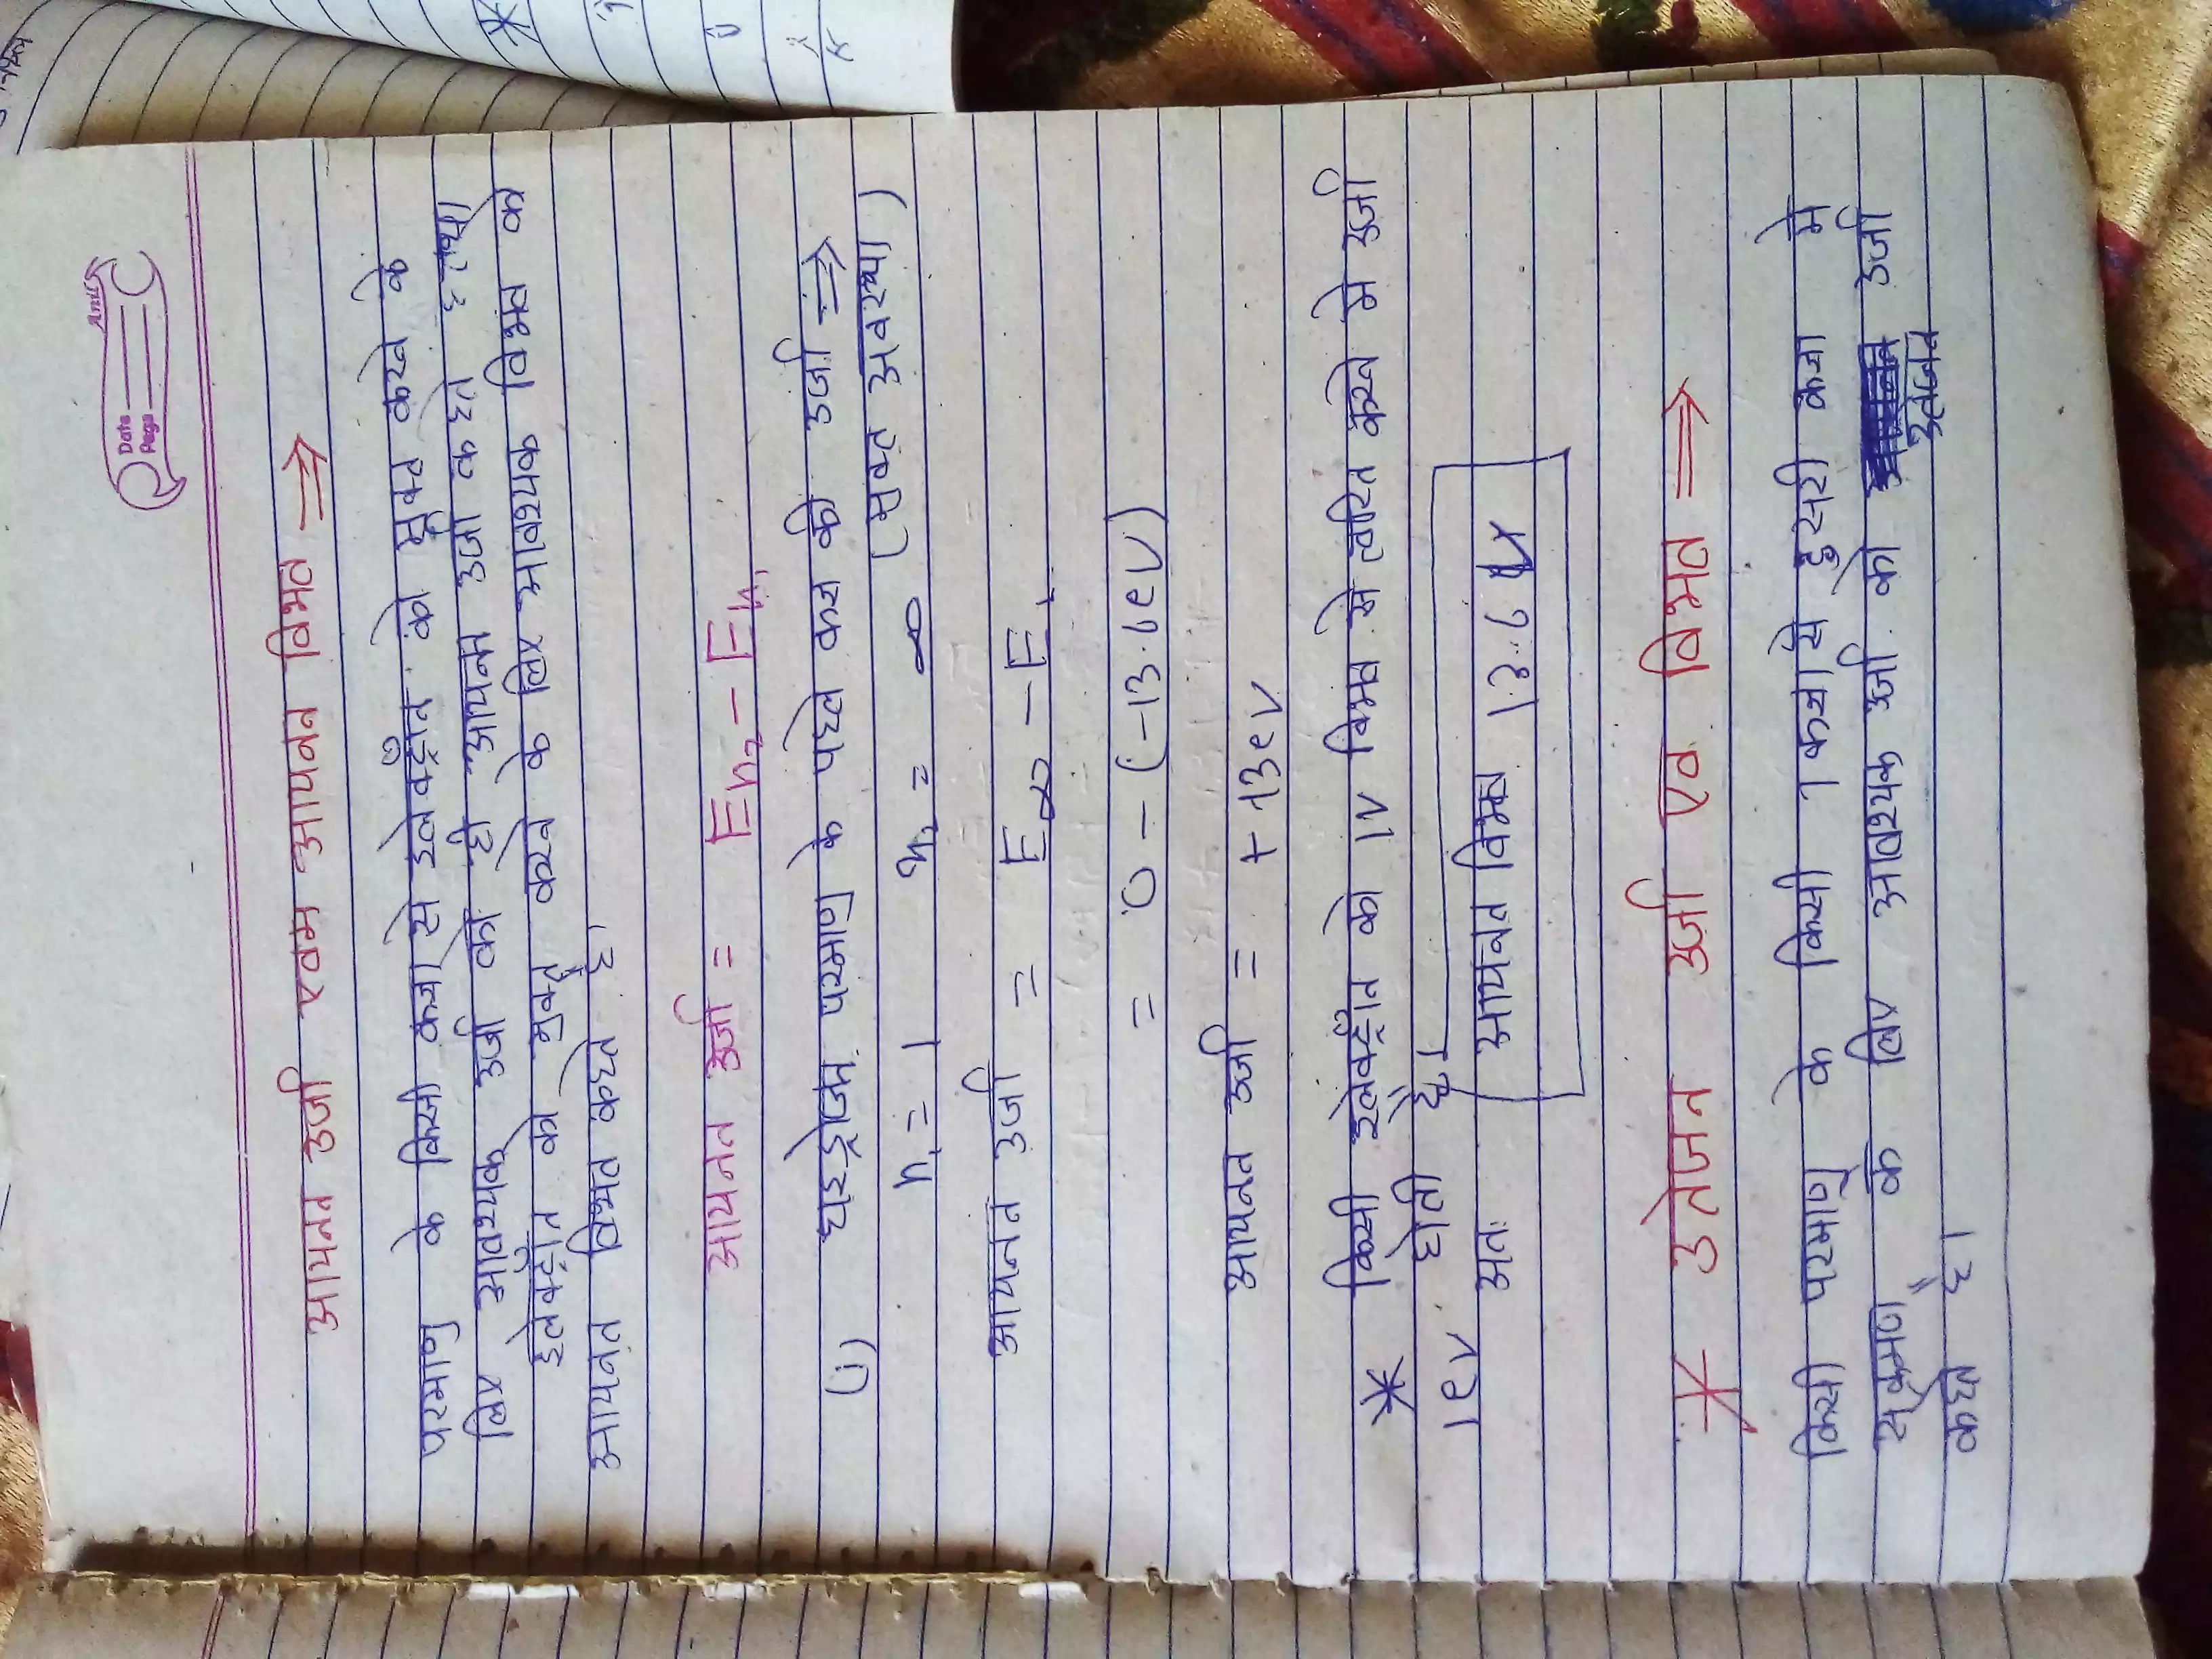 Anu
Date
Page
आयनन उर्जा एवम आयनन विभव ⇒
परमाणु के किसी कक्षा से इलेक्ट्रॉन को मुक्त करने के
लिए आवश्यक उर्जा को ही आयनन उर्जा कहते है तथा
इलेक्ट्रॉन को मुक्त करने के लिए आवश्यक विभव को
आयनन विभव कहते है।
आयनन उर्जा = En₂ - En₁
(i) हाइड्रोजन परमाणु के पहले कक्ष की उर्जा ⇒
n₁ = 1 n₂ = ∞ (मुक्त अवस्था)
आयनन उर्जा = E∞ - E₁
= 0 - (-13.6eV)
आयनन उर्जा = + 13eV
* किसी इलेक्ट्रॉन को 1V विभव से त्वरित करने मे उर्जा
1eV होती है।
अतः आयनन विभव 13.6 V
* उतेजन उर्जा एव विभव ⇒
किसी परमाणु के किसी 1 कक्षा से दुसरी कक्षा मे
संक्रमण के लिए आवश्यक उर्जा को उतेजन उर्जा
कहते है।